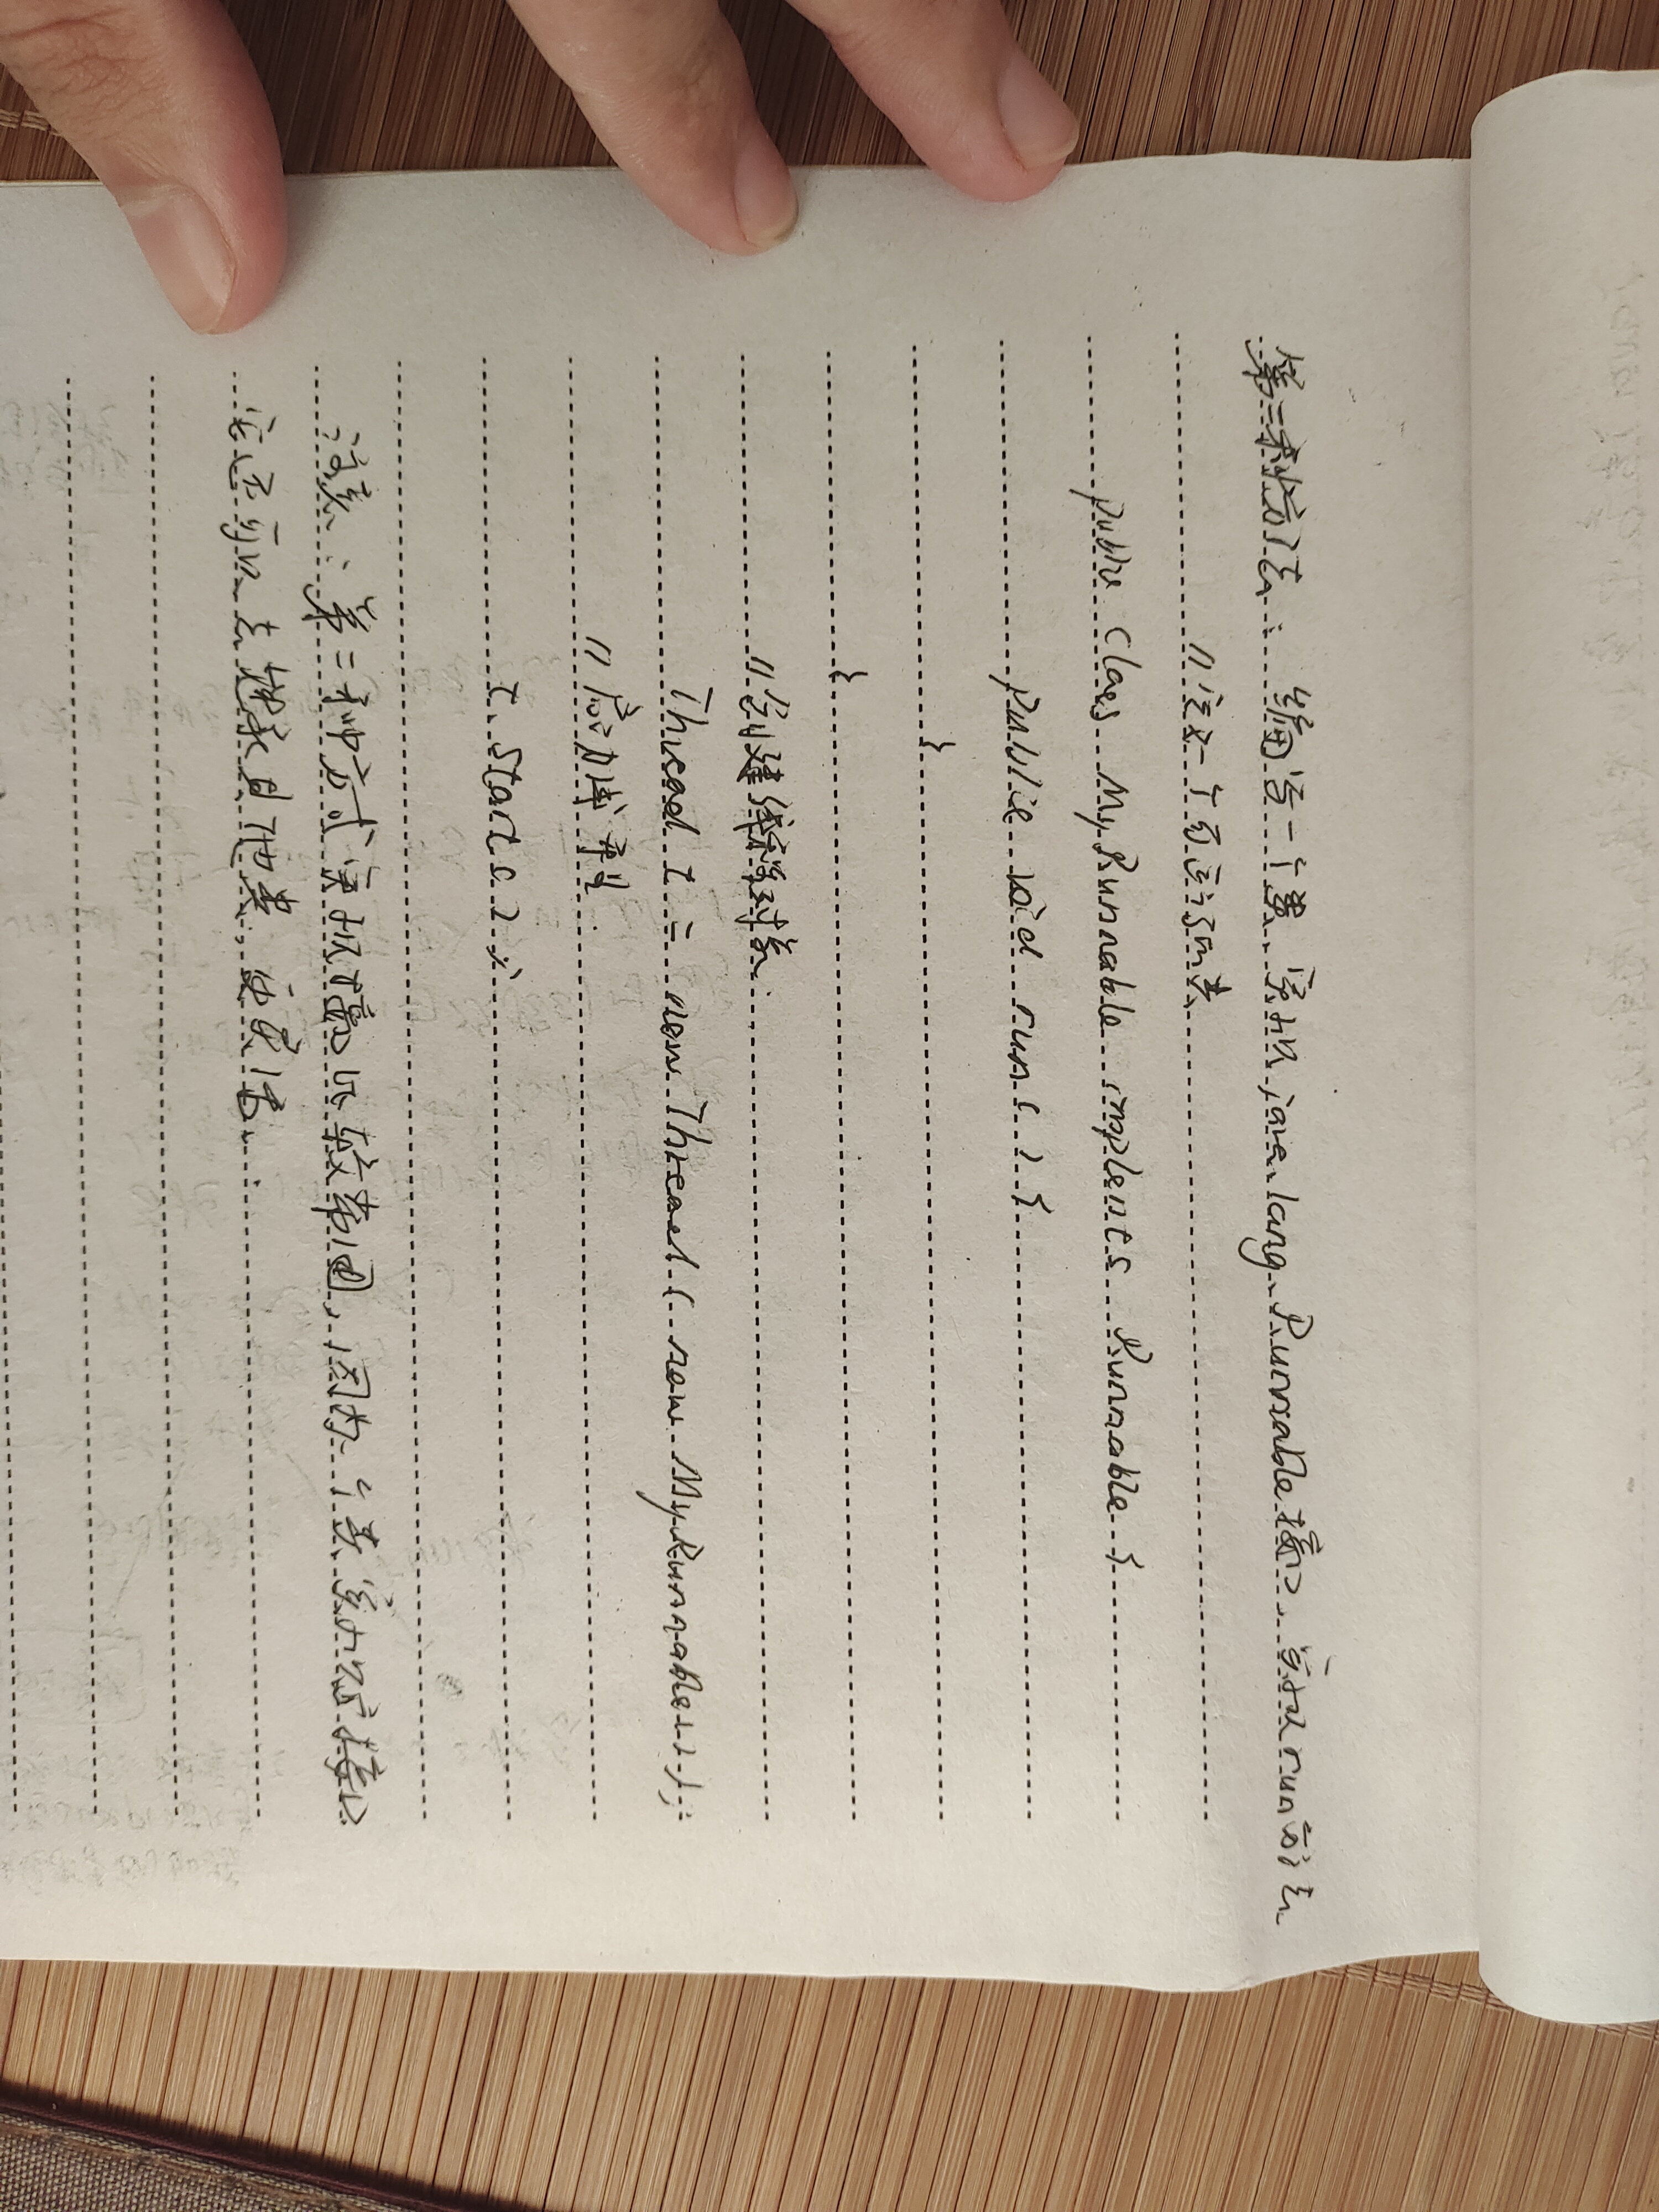 第二种方法: 编写一个类, 实现java.lang.Runnable接口, 实现run方法
//定义一个可运行的类
public class MyRunnable implents Runnable {
public void run ( ) {
}
}
//创建线程对象.
Thread t = new Thread ( new MyRunnable());
//启动线程
t.start();
注意: 第二种方式实现接口比较常用, 因为一个类实现了接口
它还可以去继承其他类, 更灵活.